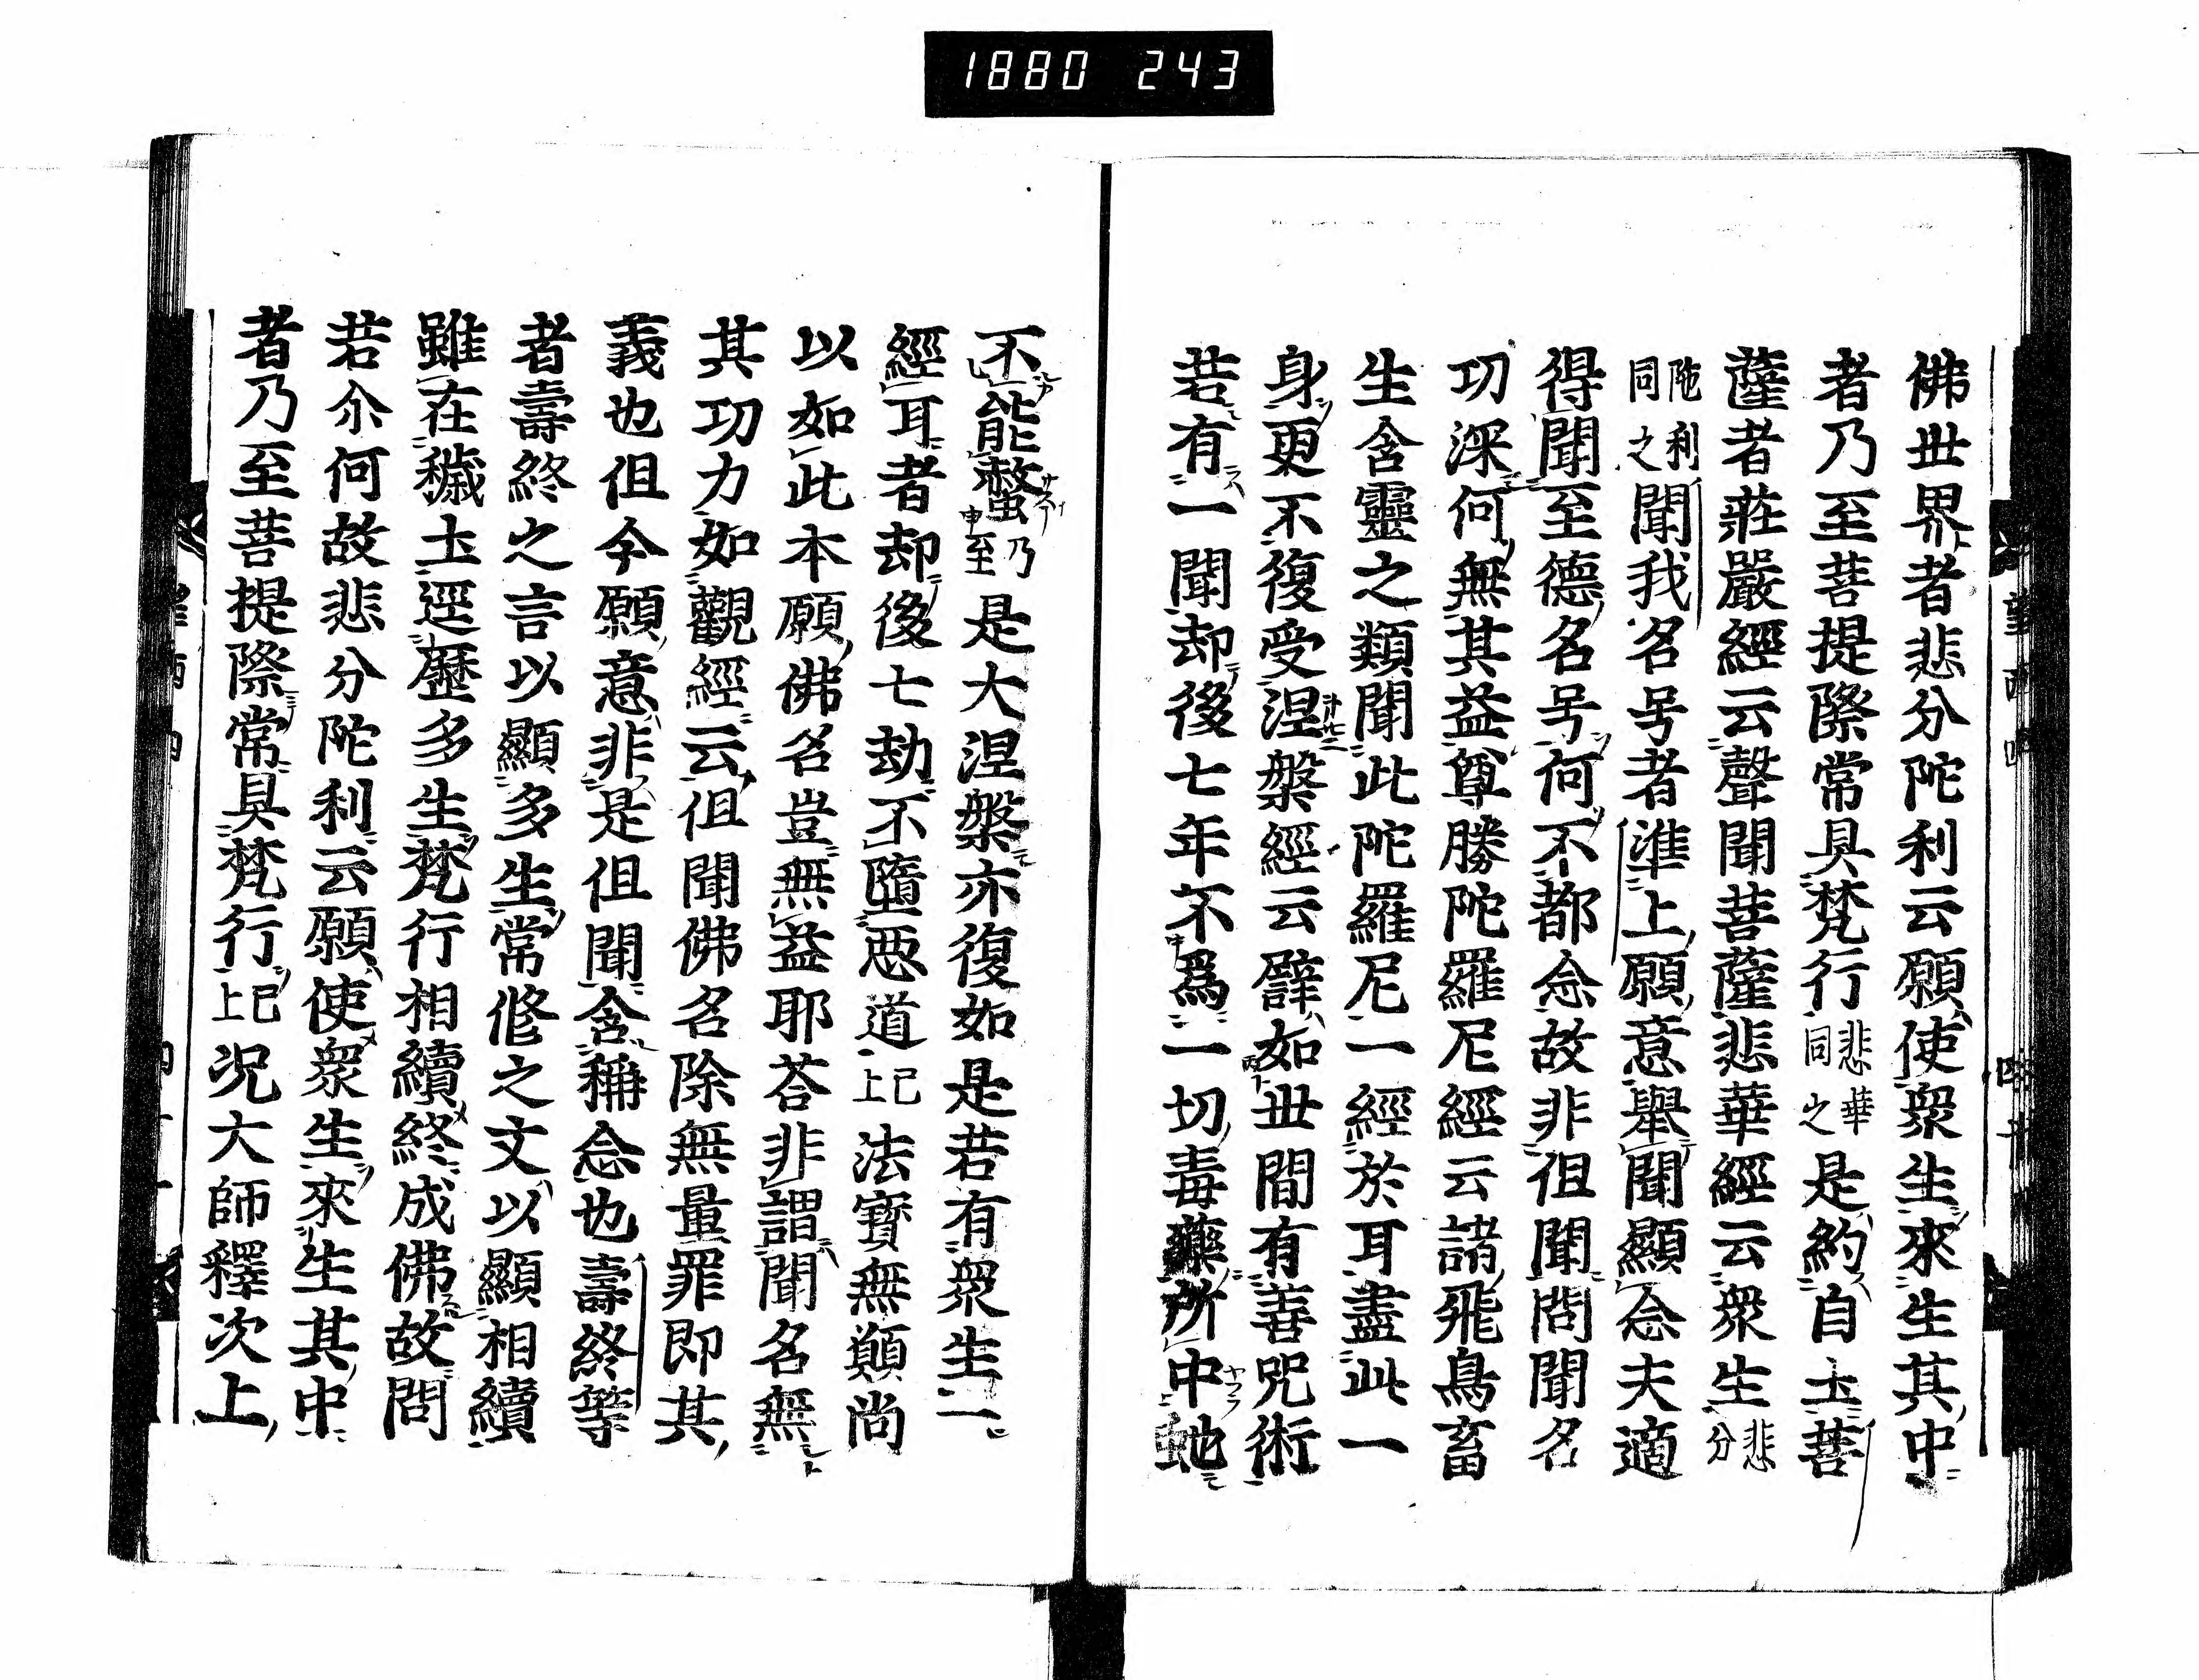 1880 243
佛世界者悲分陀利云願使衆生來生其中
者乃至菩提際常具梵行悲華同之是約自土菩
薩者莊嚴經云聲聞菩薩悲華經云衆生悲分
陁利同之聞我名号者準上願意舉聞顯念夫適
得聞至德名号何不都念故非但聞問聞名
功深何無其益尊勝陀羅尼經云諸飛鳥畜
生含靈之類聞此陀羅尼一經於耳盡此一
身更不復受涅槃經云譬如世間有善咒術
若有一聞却後七年不爲一切毒藥所中虵
不能螫乃至是大涅槃亦復如是若有衆生一
經耳者却後七劫不墮惡道已上法寶無顛尚
以如此本願佛名豈無益耶荅非謂聞名無
其功力如觀經云但聞佛名除無量罪即其
義也但今願意非是但聞含稱念也壽終等
者壽終之言以顯多生常修之文以顯相續
雖在穢土逕歷多生梵行相續終成佛故問
若尒何故悲分陀利云願使衆生來生其中
者乃至菩提際常具梵行已上况大師釋次上